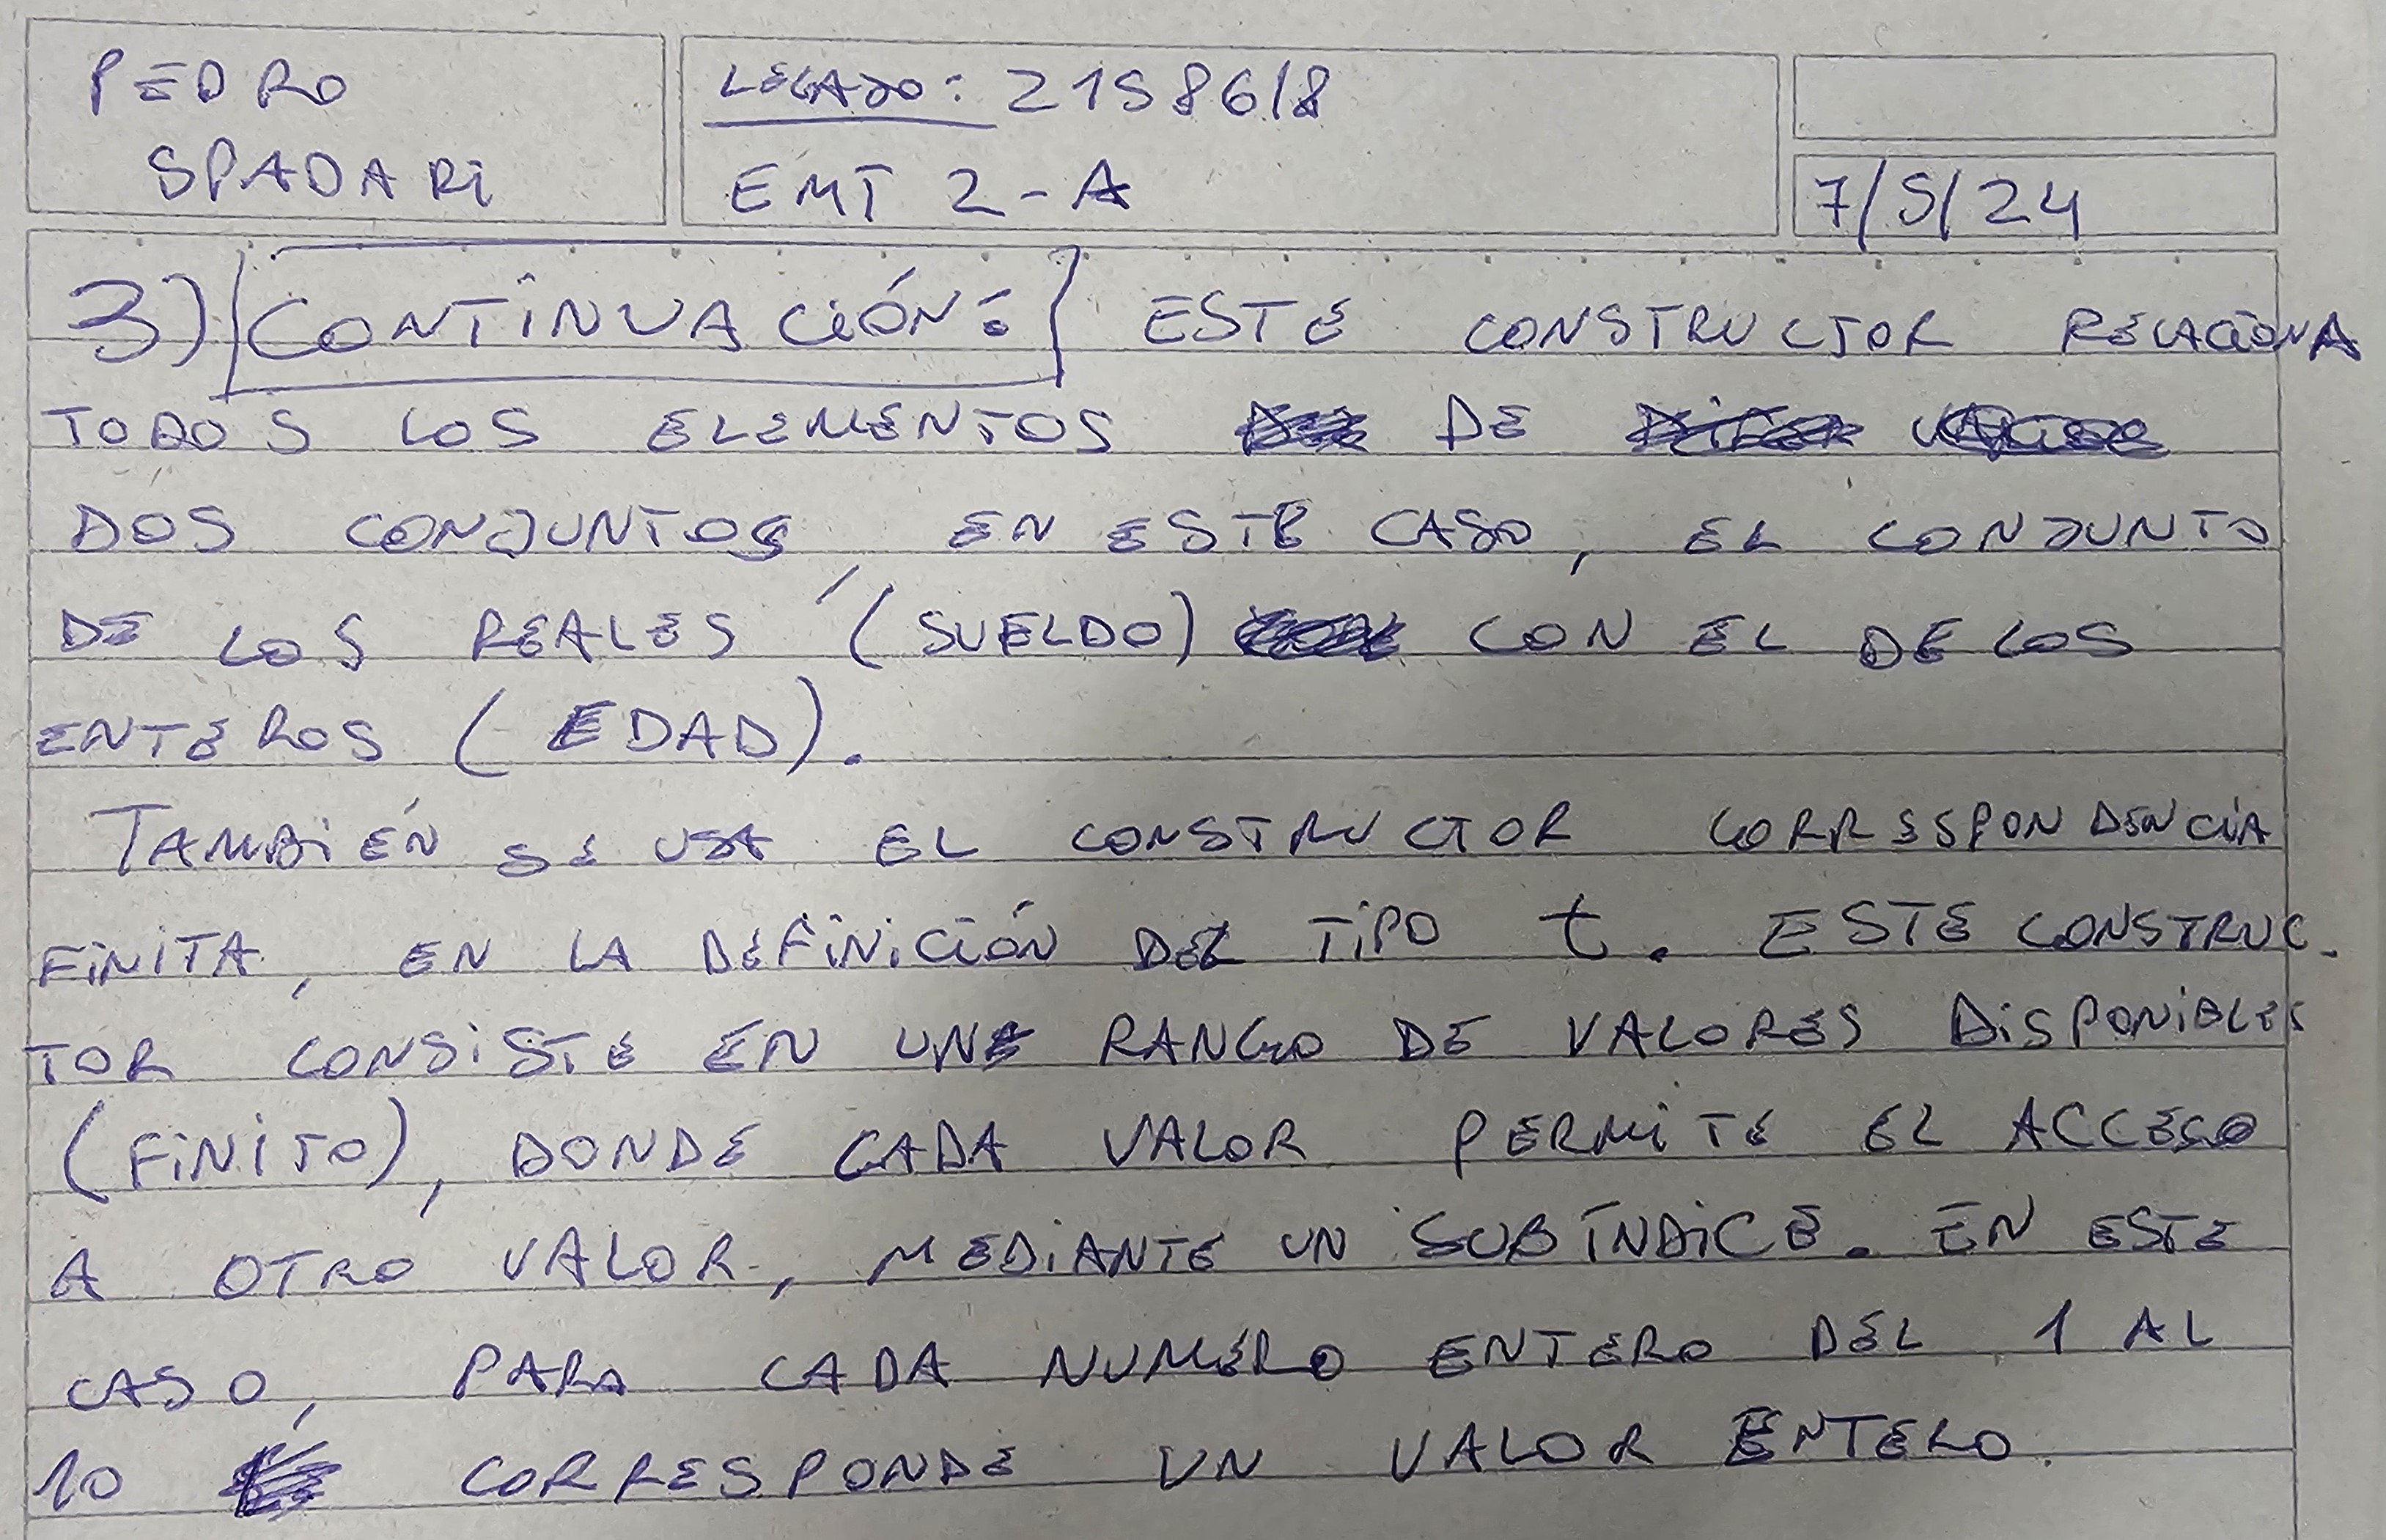 PEDRO
SPADARI
LEGAJO: 21586/8
EMT 2-A
7/5/24
3) CONTINUACIÓN: ESTE CONSTRUCTOR RELACIONA
TODOS LOS ELEMENTOS DE
DOS CONJUNTOS, EN ESTE CASO, EL CONJUNTO
DE LOS REALES (SUELDO) CON EL DE LOS
ENTEROS (EDAD).
TAMBIÉN SE USA EL CONSTRUCTOR CORRESPONDENCIA
FINITA, EN LA DEFINICIÓN DEL TIPO t. ESTE CONSTRUC-
TOR CONSISTE EN UN RANGO DE VALORES DISPONIBLES
(FINITO), DONDE CADA VALOR PERMITE EL ACCESO
A OTRO VALOR, MEDIANTE UN SUBÍNDICE. EN ESTE
CASO, PARA CADA NUMERO ENTERO DEL 1 AL
10 CORRESPONDE UN VALOR ENTERO.